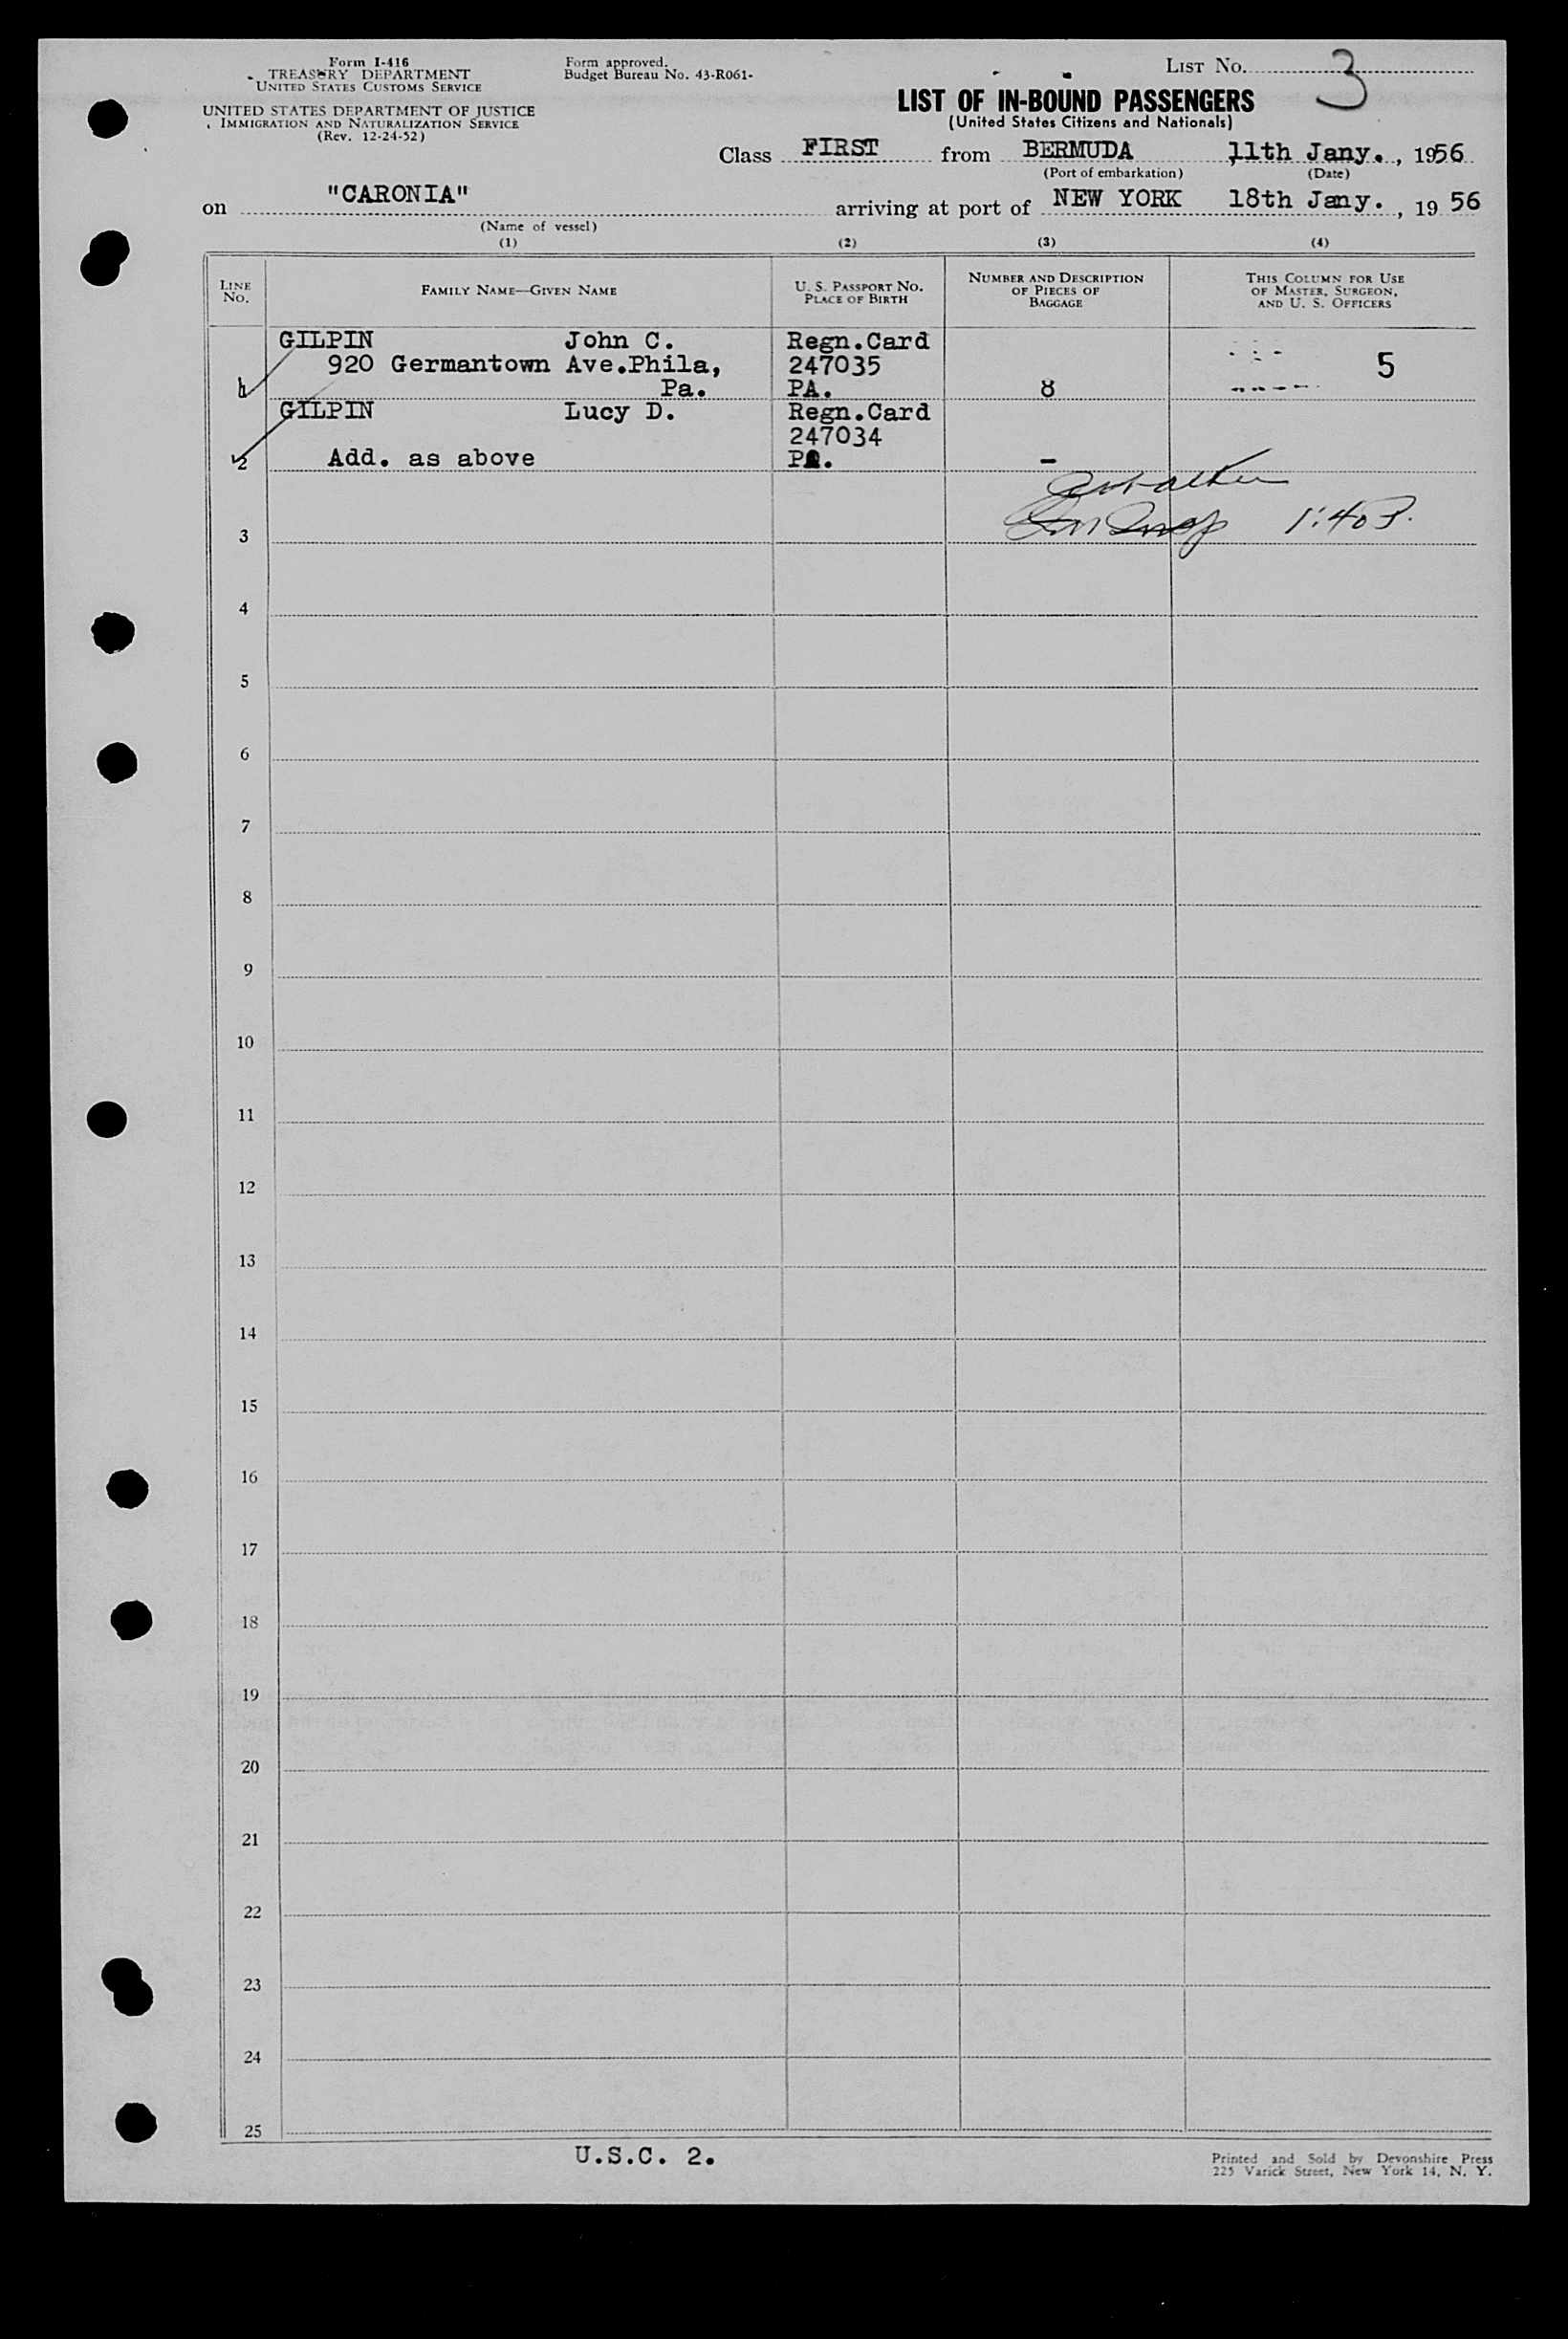 Form I-416
TREASURY DEPARTMENT
UNITED STATES CUSTOMS SERVICE
UNITED STATES DEPARTMENT OF JUSTICE
IMMIGRATION AND NATURALIZATION SERVICE
(Rev. 12-24-52)
Form approved.
Budget Bureau No. 43-R061-
LIST NO. 3
LIST OF IN-BOUND PASSENGERS
(United States Citizens and Nationals)
Class FIRST from BERMUDA 11th Jany., 1956
(Port of embarkation) (Date)
on "CARONIA" arriving at port of NEW YORK 18th Jany., 19 56
(Name of vessel)
(1) (2) (3) (4)
LINE NO.
FAMILY NAME—GIVEN NAME
U. S. PASSPORT NO.
PLACE OF BIRTH
NUMBER AND DESCRIPTION
OF PIECES OF
BAGGAGE
THIS COLUMN FOR USE
OF MASTER, SURGEON,
AND U. S. OFFICERS
GILPIN John C. Regn.Card
920 Germantown Ave.Phila, 247035 5
1 Pa. PA. 8
GILPIN Lucy D. Regn.Card
247034
2 Add. as above PA. -
1:40P.
3
4
5
6
7
8
9
10
11
12
13
14
15
16
17
18
19
20
21
22
23
24
25
U.S.C. 2.
Printed and Sold by Devonshire Press
225 Varick Street, New York 14, N. Y.